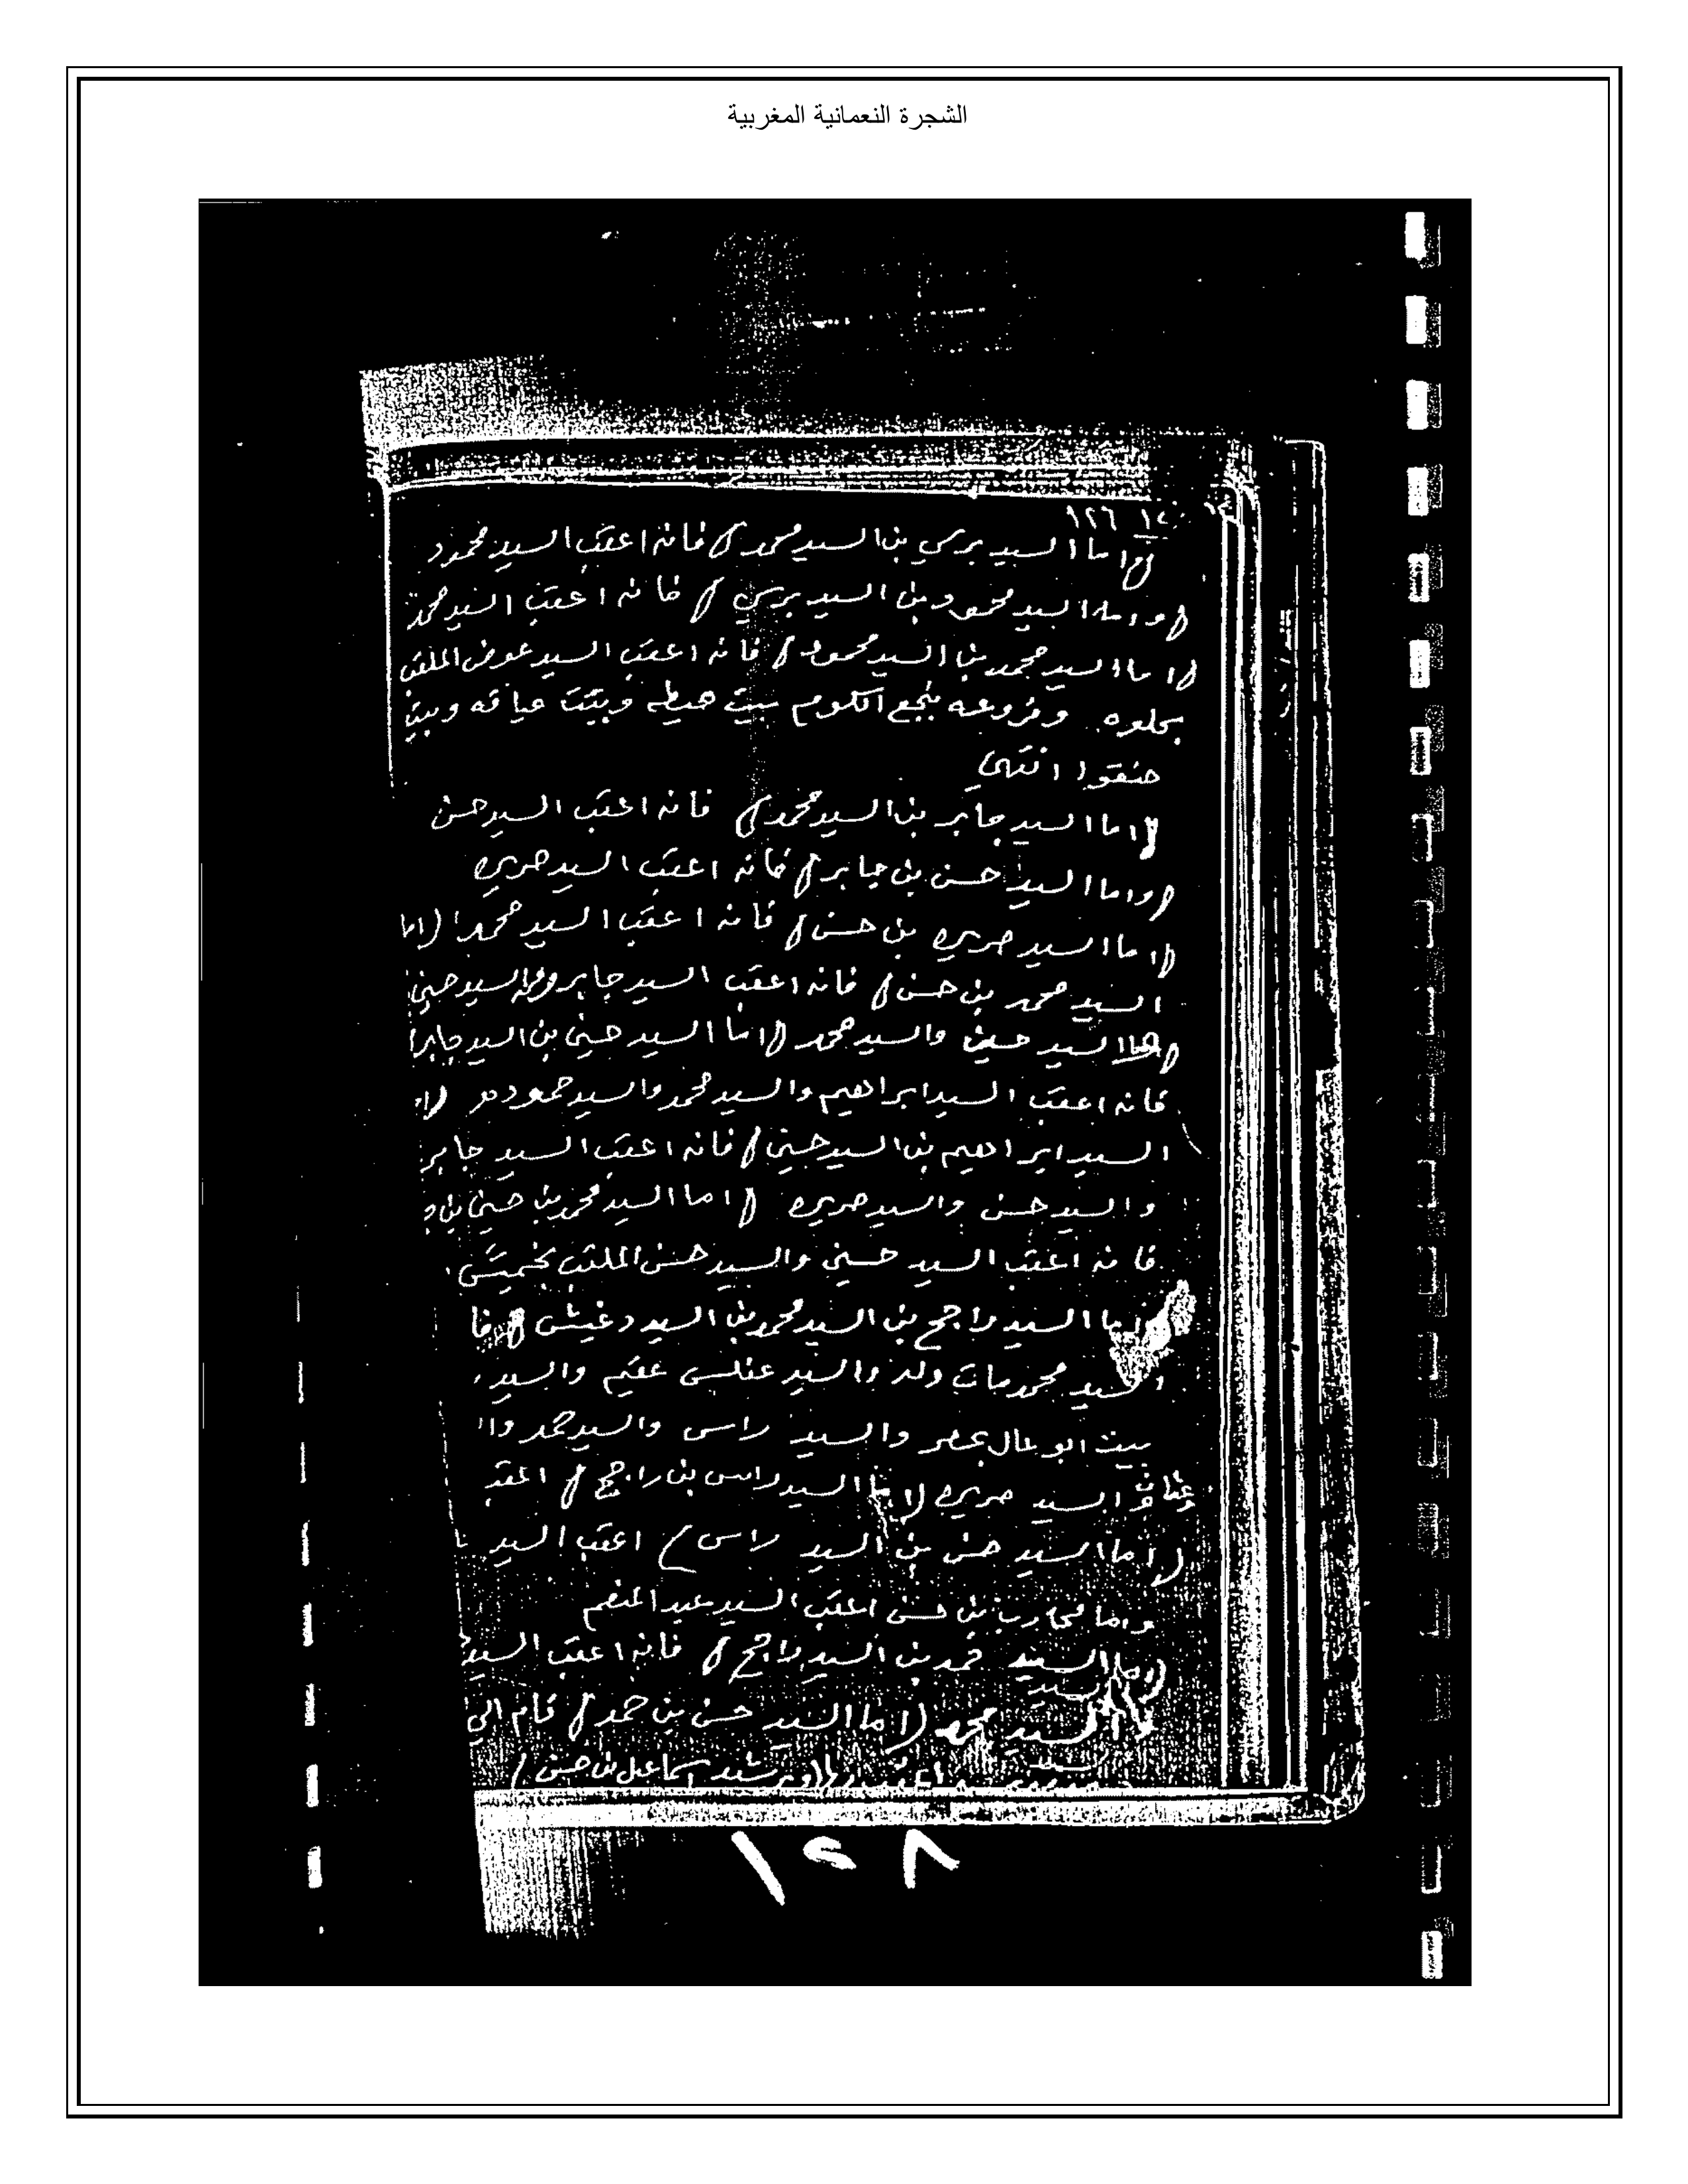 الشجرة النعمانية المغربية
١٢٦
اما السيد بري بن السيد محمد فانه اعقب السيد محمود
واما السيد محمود بن السيد بري فانه اعقب السيد محمد
اما السيد محمد بن السيد محمود فانه اعقب السيد عوض الملقب
بحلوه وفروعه بنجع الكوم بيت هيطه وبيت عياقه وبيت
حنقوا انتهي
اما السيد جابر بن السيد محمد فانه اعقب السيد حسن
واما السيد حسن بن جابر فانه اعقب السيد صريره
اما السيد صريره بن حسن فانه اعقب السيد محمد اما
السيد محمد بن حسن فانه اعقب السيد جابر السيد حسين
السيد حسين والسيد محمد اما السيد حسين بن السيد جابر
فانه اعقب السيد ابراهيم والسيد محمد والسيد حمود
السيد ابراهيم بن السيد حسين فانه اعقب السيد جابر
والسيد حسن والسيد صريره اما السيد محمد بن حسين بن
فانه اعقب السيد حسين والسيد حسن الملقب
السيد راجح بن السيد محمد بن السيد دغيش فا
السيد محمد مات ولد والسيد عقيم والسيد
بيت ابو عال بمصر والسيد راس والسيد حمد وا
والسيد صريره اما السيد راس بن راجح اعقب
اما السيد حسن بن السيد راس اعقب السيد
واما محارب بن حسن اعقب السيد عبد المنعم
اما السيد حمد بن السيد راجح فانه اعقب السيد
السيد محمد اما السيد حسن بن حمد قام الي
اسماعيل بن حسن
١٢٨